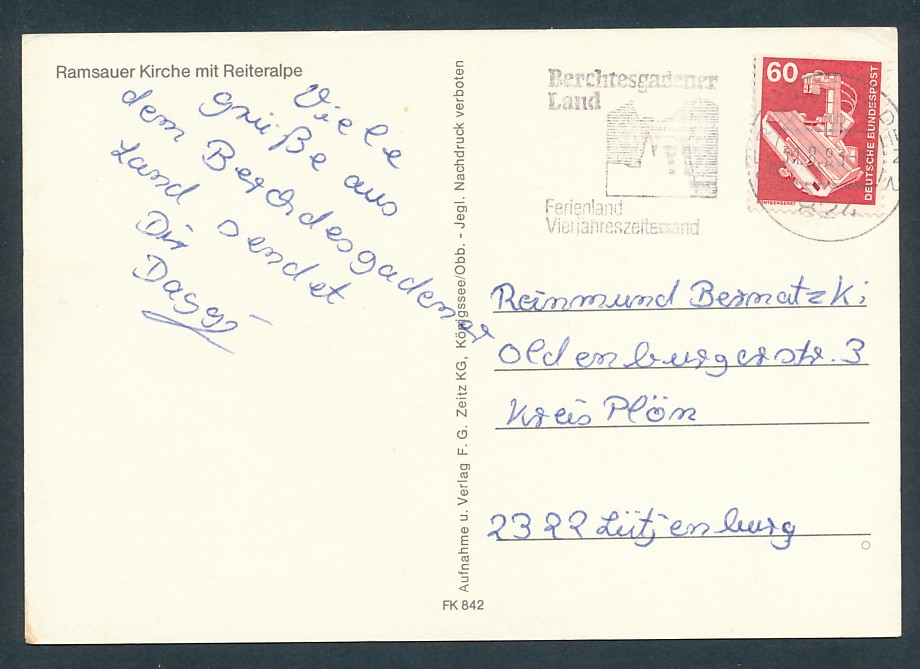 Ramsauer Kirche mit Reiteralpe
Viele
Grüße aus
dem Berchdesgadener
Land sendet
Dir
Daggi
Aufnahme u. Verlag F. G. Zeitz KG, Königssee/Obb. - Jegl. Nachdruck verboten
FK 842
Berchtesgadener
Land
Ferienland
Vierjahreszeitenland
60
DEUTSCHE BUNDESPOST
RÖNTGENGERÄT
Reinmund Bernatzki
Oldenburgerstr. 3
Kreis Plön
2322 Lütjenburg